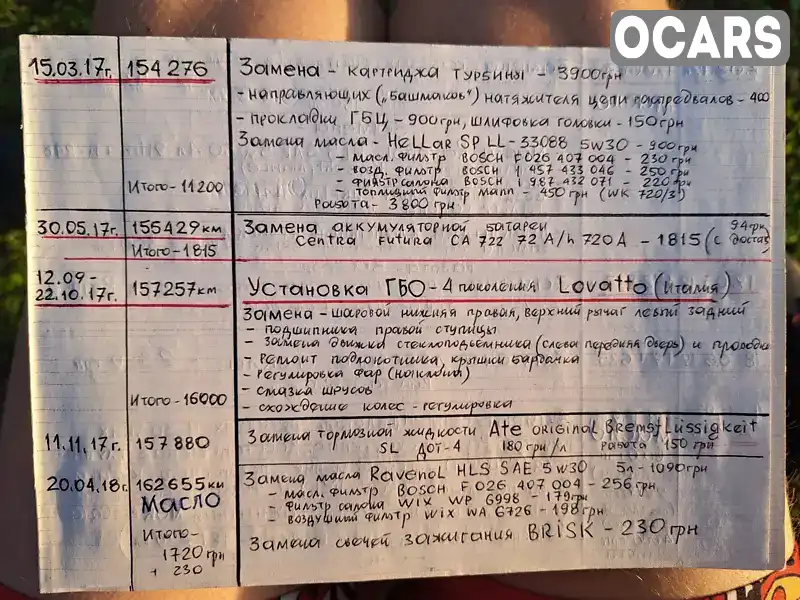 OCARS
15.03.17г. 154 276 Замена - картриджа турбины - 3900грн
- направляющих („башмаков") натяжителя цепи распредвалов - 400
- прокладки ГБЦ - 900грн, шлифовка головки - 150грн
Замена масла - Hellar SP LL-33088 5W30 - 900грн
- масл. фильтр BOSCH F026 407 004 - 230 грн
- возд. фильтр BOSCH 1 457 433 046 - 250 грн
Итого - 11200 - фильтр салона BOSCH 1 987 432 071 - 220 грн
- топливный фильтр Mann - 450 грн (WK 720/3)
Работа - 3800 грн
30.05.17г. 155429 км Замена аккумуляторной батареи 94грн
Итого - 1815 Centra Futura CA 722 72 A/h 720 A - 1815 (с достав)
12.09 -
22.10.17г. 157257км Установка ГБО - 4 поколения Lovatto (Италия)
Замена - шаровой нижняя правая, верхний рычаг левый задний
- подшипника правой ступицы
- замена движка стеклоподъемника (слева передняя дверь) и проводки
- ремонт подлокотника, крышки бардачка
- регулировка фар (наклона)
- смазка шрусов
Итого - 16000 - схождение колес - регулировка
11.11.17г. 157 880 Замена тормозной жидкости Ate original Bremsflüssigkeit
SL ДОТ-4 180 грн/л Работа 150 грн
20.04.18г. 162655км Замена масла Ravenol HLS SAE 5W30 5л - 1090грн
Масло - масл. фильтр BOSCH F 026 407 004 - 256 грн
- фильтр салона WIX WP 6998 - 179грн
- воздушный фильтр WIX WA 6726 - 198 грн
Итого -
1720 грн
+ 230
Замена свечей зажигания BRISK - 230 грн